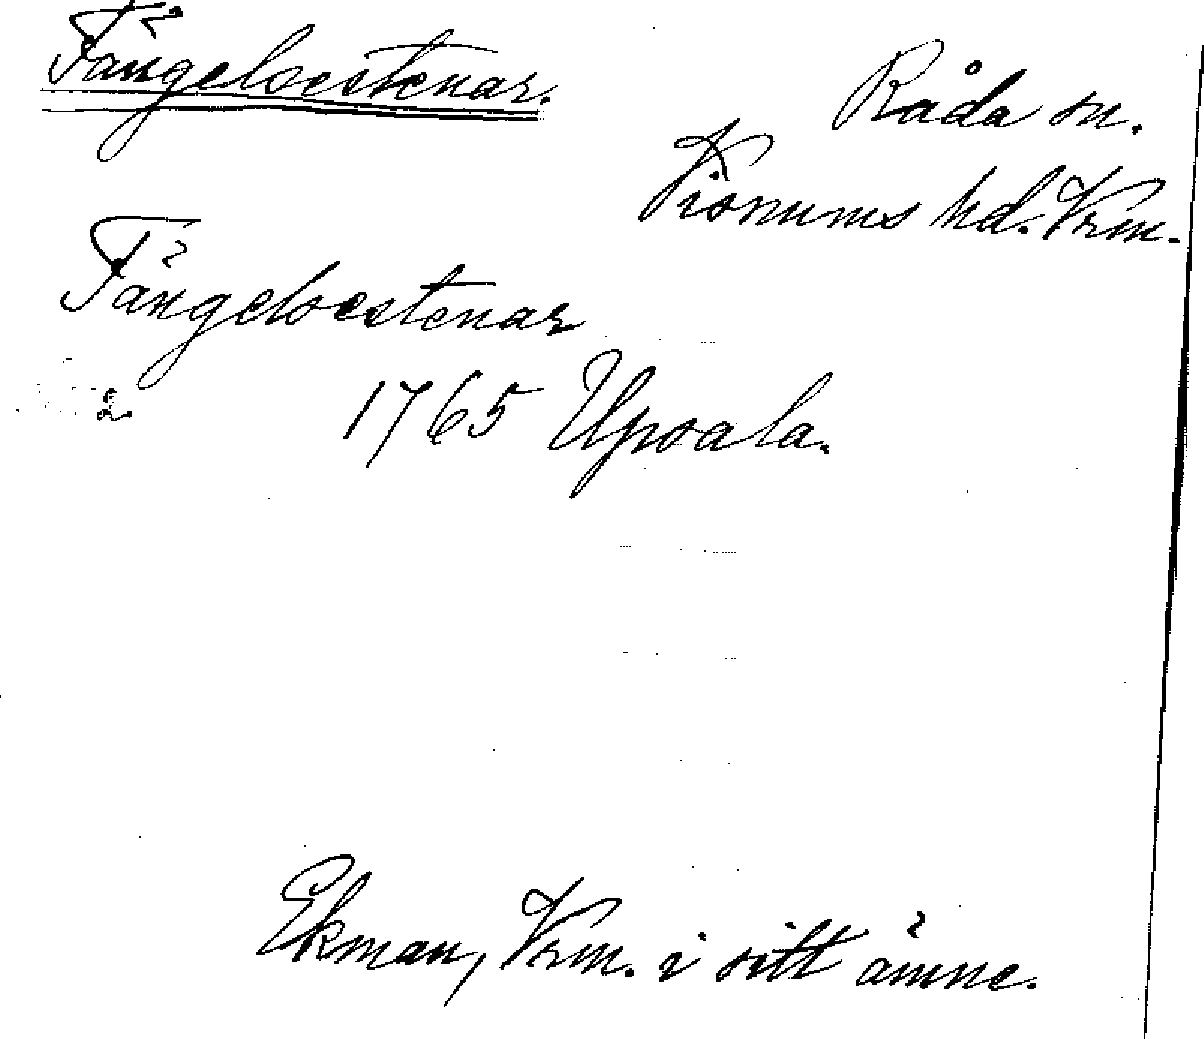 Fängeboestenar.
Råda sn.
Visnums hd. Vrm.
Fängeboestenar
1765 Upsala.
Ekman, Vrm. i sitt ämne.